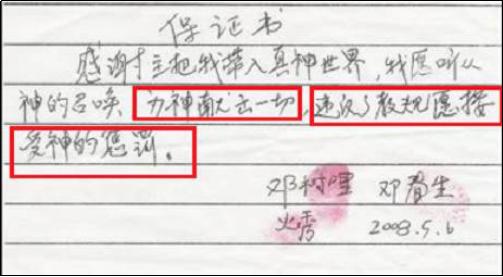 保证书
感谢才主把我带入真神世界,我愿听从
神的召唤 为神献出一切,违反了教规愿接
受神的惩罚。
邓树 邓春生
火秀 2008.5.6